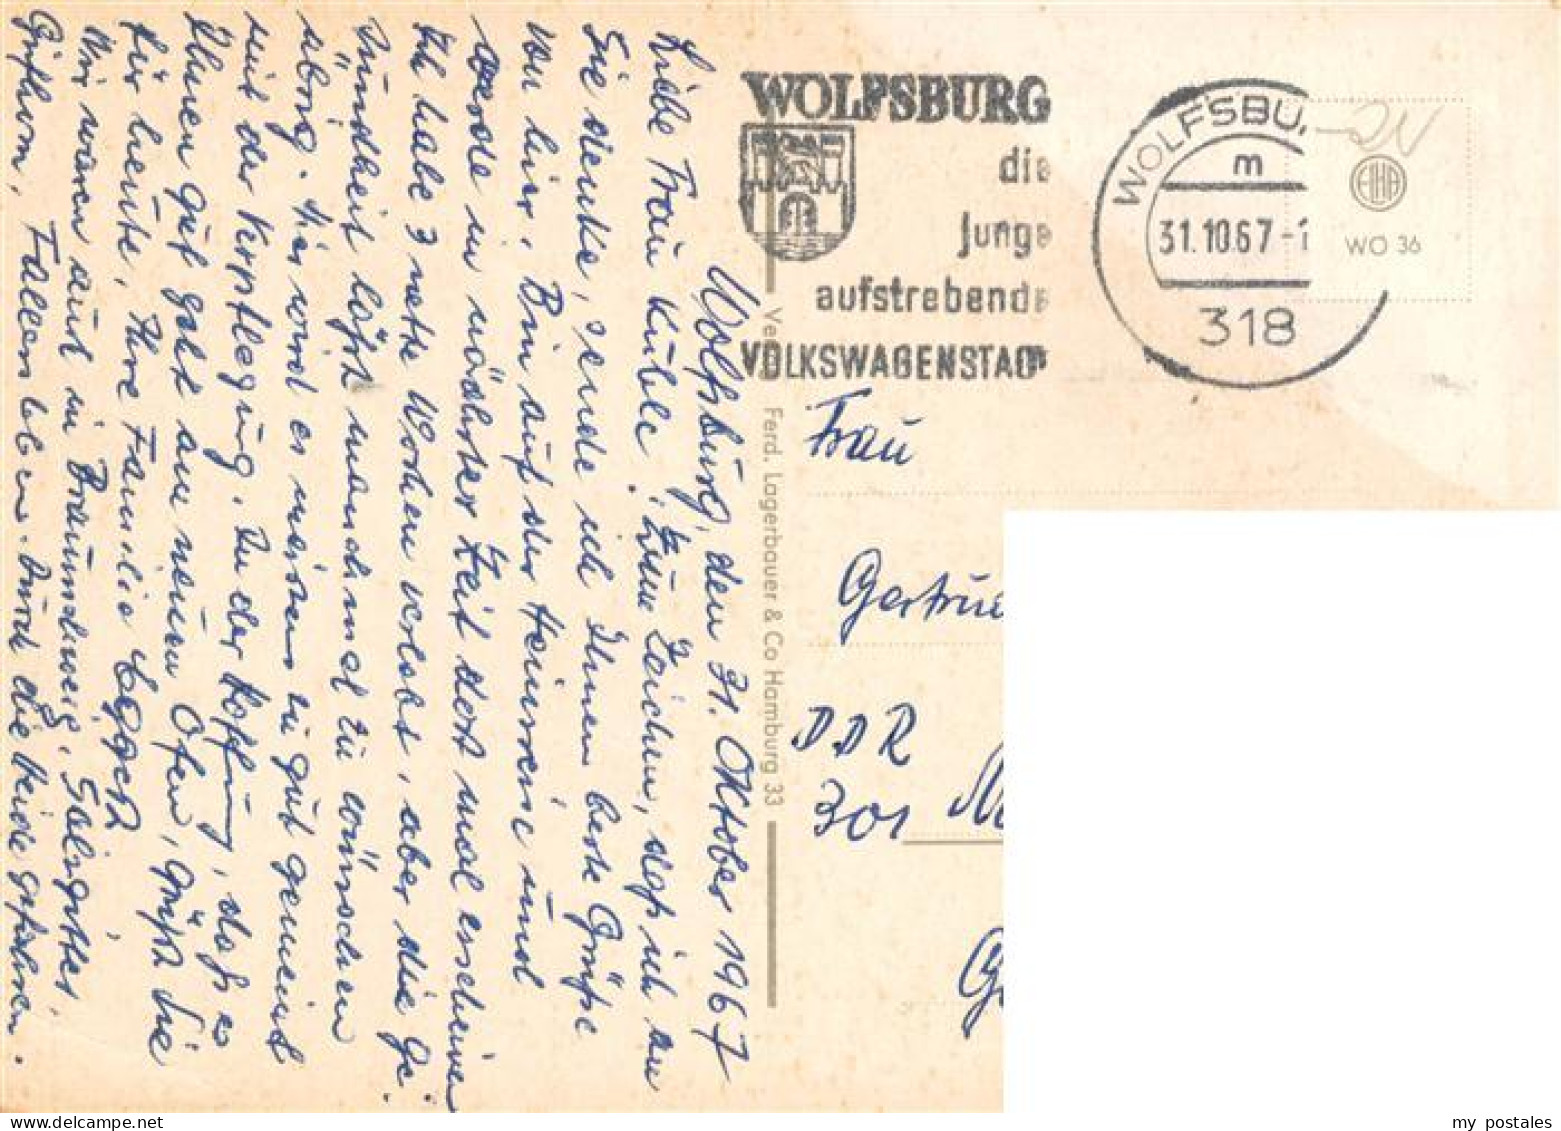 Wolfsburg, den 31. Oktober 1967
Liebe Frau Kühle! Zum Zeichen, daß ich an
Sie denke, sende ich Ihnen beste Grüße
von hier. Bin auf der Heimreise und
werde in nächster Zeit dort mal erscheinen
Ich habe 3 nette Wochen verlebt, aber die Ge-
sundheit läßt manchmal zu wünschen
übrig. Hier wird es meistens zu gut gemeint
mit der Verpflegung. In der Hoffnung, daß es
Ihnen gut geht am neuen Ofen, grüßt Sie
für heute, Ihre Familie
Wir waren auch in Braunschweig, Salzgitter,
Gifhorn, Fallersleben. Durch die Heide gefahren.
WOLFSBURG
die
junge
aufstrebende
VOLKSWAGENSTADT
WOLFSBU
m
31.10.67-1
318
ELHA
WO 36
Ve
Ferd. Lagerbauer & Co Hamburg 33
Frau
Gertrud
DDR
301
my postales